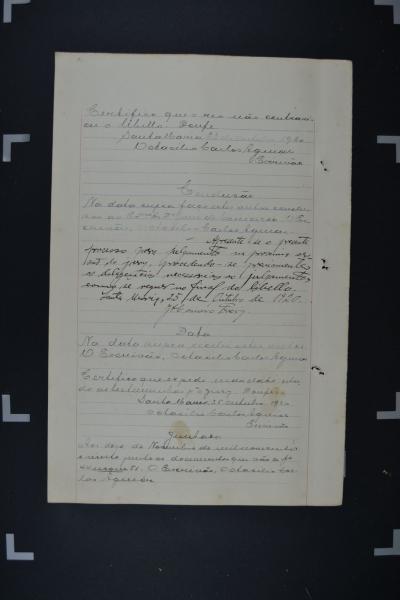 Certifico que o reo não contrari-
ou o libello. Doufé
Santa Maria, de Outubro 1920
Octacilio Carlos Aguiar
Escrivão
Conclusão
Na data supra faço estes autos conclu-
sos ao Exmo Dr Juiz da Comarca. O Es-
crivão, Octacilio Carlos Aguiar
Apresente-se o presente
processo para julgamento na proxima
do jury, procedendo-se previamente
as diligencias necessarias ao julgamento,
como se requer no final do libello.
Santa Maria, 25 de Outubro de 1920.
Data
Na data supra recebi estes autos.
O Escrivão, Octacilio Carlos Aguiar
Certifico que expedi mandado
as testemunhas
Santa Maria 25 Outubro 1920
Octacilio Carlos Aguiar
Escrivão
Juntada
Aos doze de Novembro de mil novecentos
e vinte, junto os documentos que vão a
O Escrivão, Octacilio Car-
los Aguiar